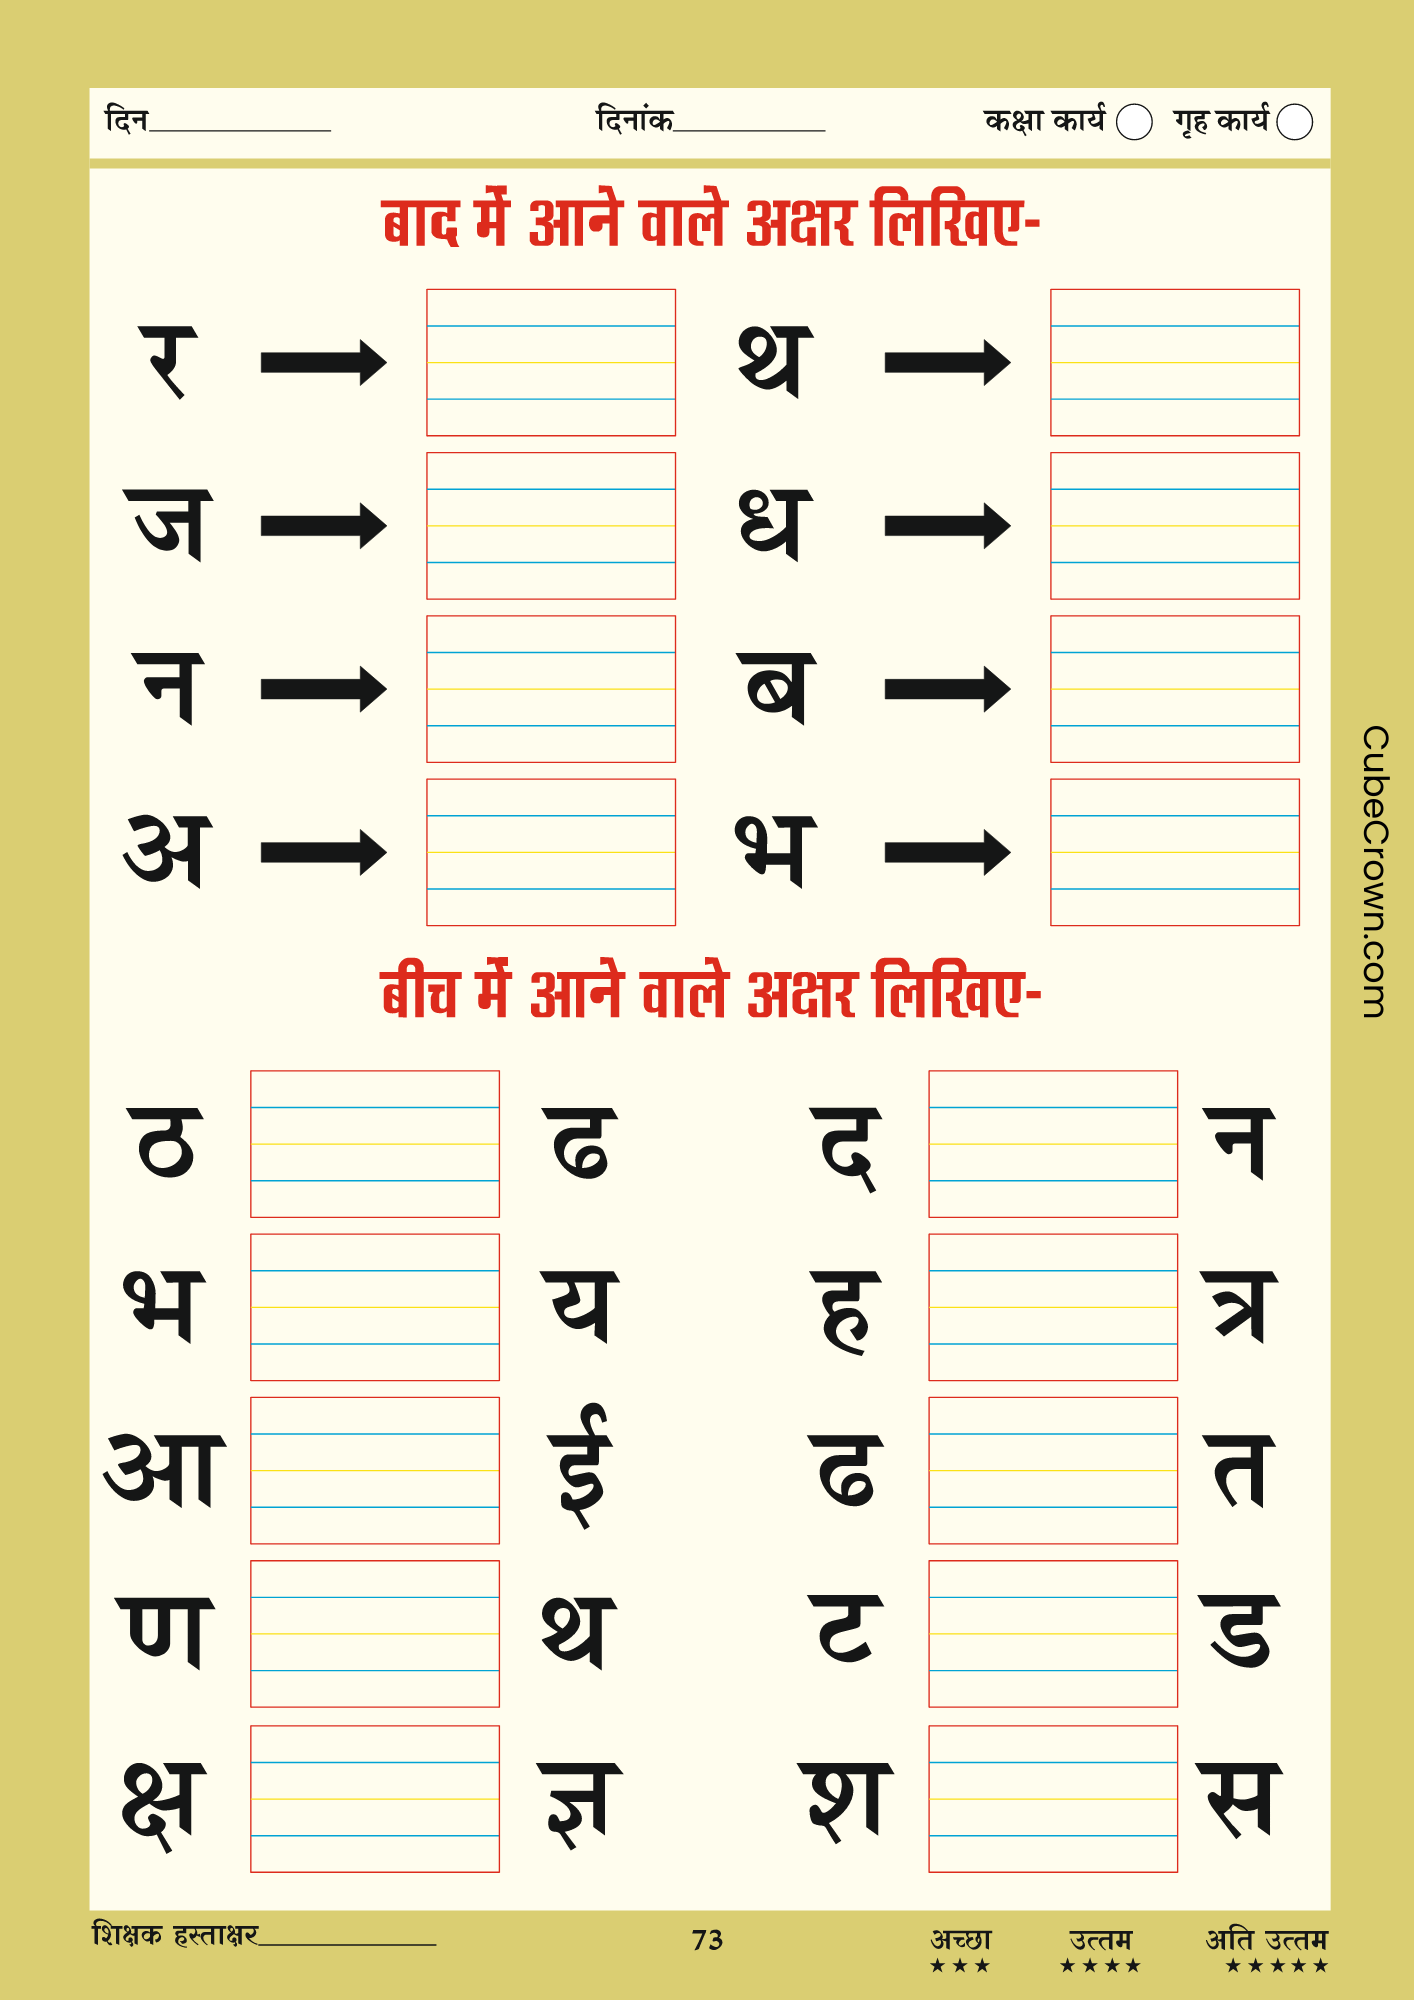 दिन__________ दिनांक__________ कक्षा कार्य गृह कार्य
बाद में आने वाले अक्षर लिखिए-
र थ
ज ध
न ब
अ भ
बीच में आने वाले अक्षर लिखिए-
ठ ढ द न
भ य ह त्र
आ ई ढ त
ण थ ट ड
क्ष ज्ञ श स
शिक्षक हस्ताक्षर__________ 73 अच्छा उत्तम अति उत्तम
★★★ ★★★★ ★★★★★
CubeCrown.com